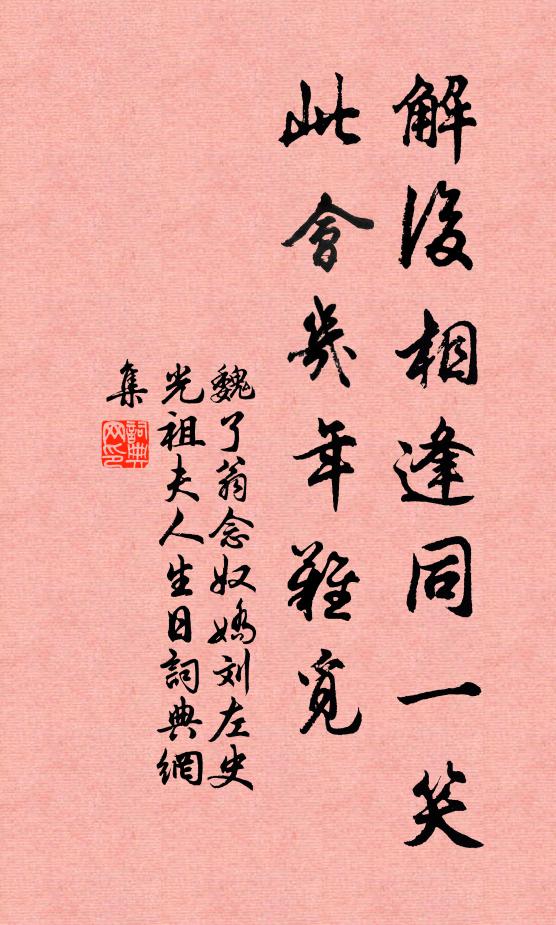 解後相逢同一笑
此會幾年難覓
魏了翁念奴嬌刘左史
光祖夫人生日詞典網
集
詞典網印